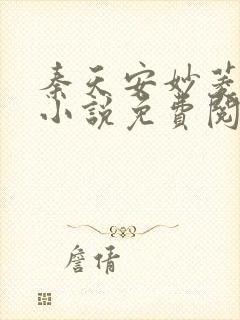 秦天安妙菱
小说免費閱
詹倩